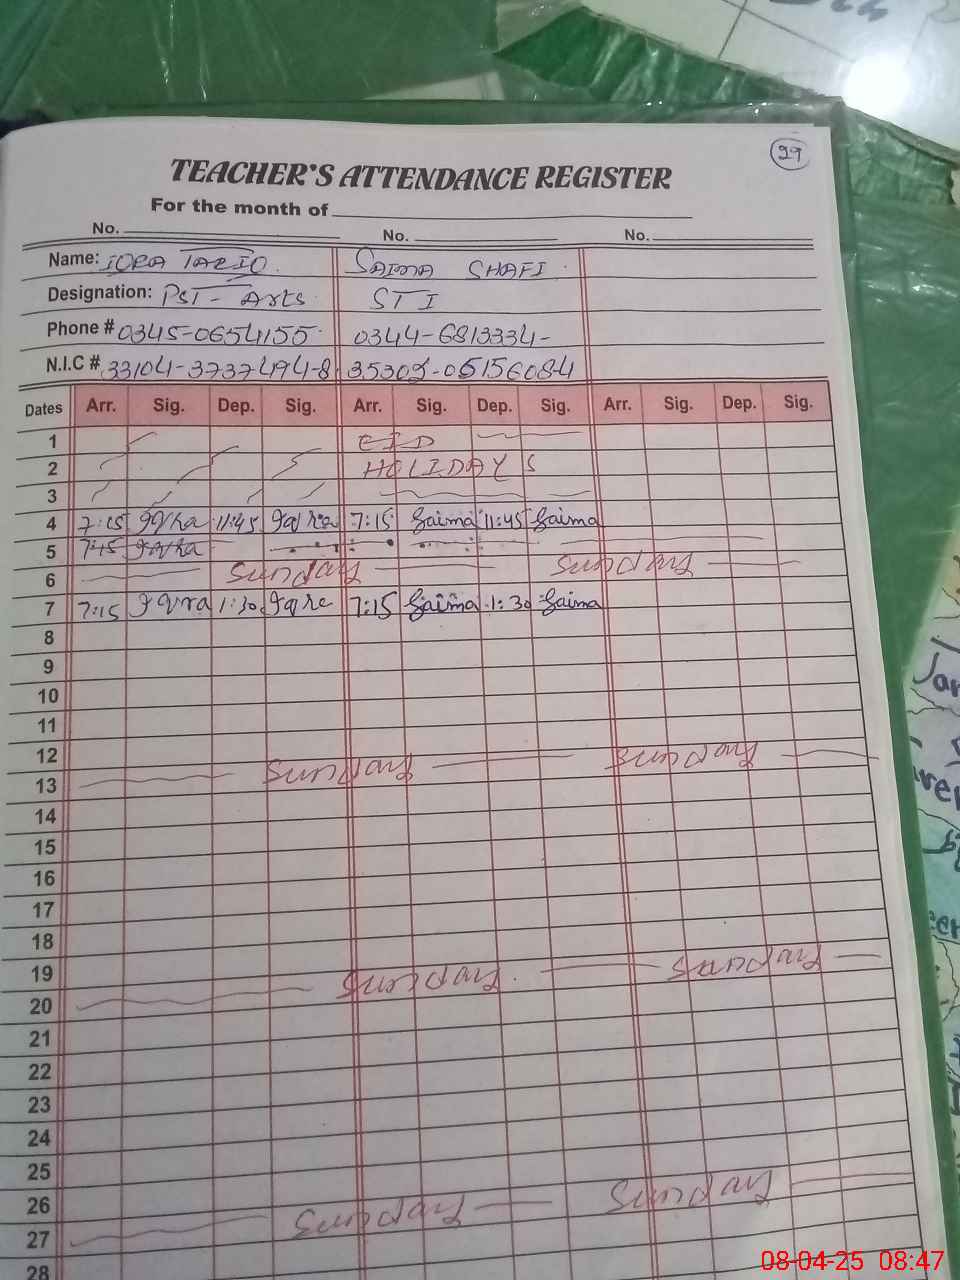 29
TEACHER'S ATTENDANCE REGISTER
For the month of
No. No. No.
Name: IQRA TARIQ SAIMA SHAFI
Designation: PST - Arts STI
Phone # 0345-0654155 0344-6813334
N.I.C # 33104-3737494-8
Dates Arr. Sig. Dep. Sig. Arr. Sig. Dep. Sig. Arr. Sig. Dep. Sig.
1 EID
2 HOLIDAYS
3
4 7:15 Iqra 11:45 Iqra 7:15 Saima 11:45 Saima
5 7:15 Iqra
6 Sunday Sunday
7 7:15 Iqra 1:30 Iqra 7:15 Saima 1:30 Saima
8
9
10
11
12
13 Sunday Sunday
14
15
16
17
18
19
20 Sunday Sunday
21
22
23
24
25
26
27 Sunday Sunday
28
08-04-25 08:47